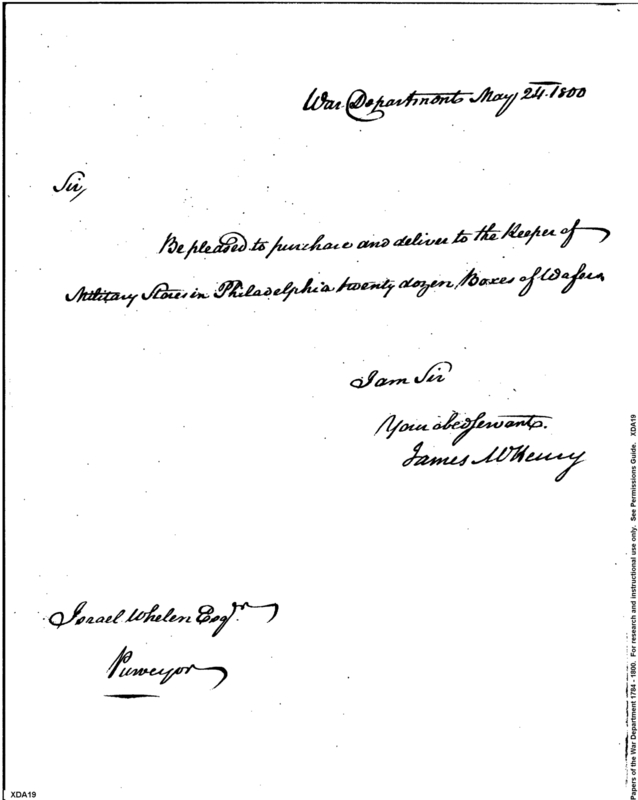 War Department May 24. 1800
Sir,
Be pleased to purchase and deliver to the Keeper of
Military Stores in Philadelphia twenty dozen Boxes of Wafers
I am Sir
Your obed servant.
James McHenry
Israel Whelen Esqr.
Purveyor
XDA19
Papers of the War Department 1784 - 1800. For research and instructional use only. See Permissions Guide. XDA19